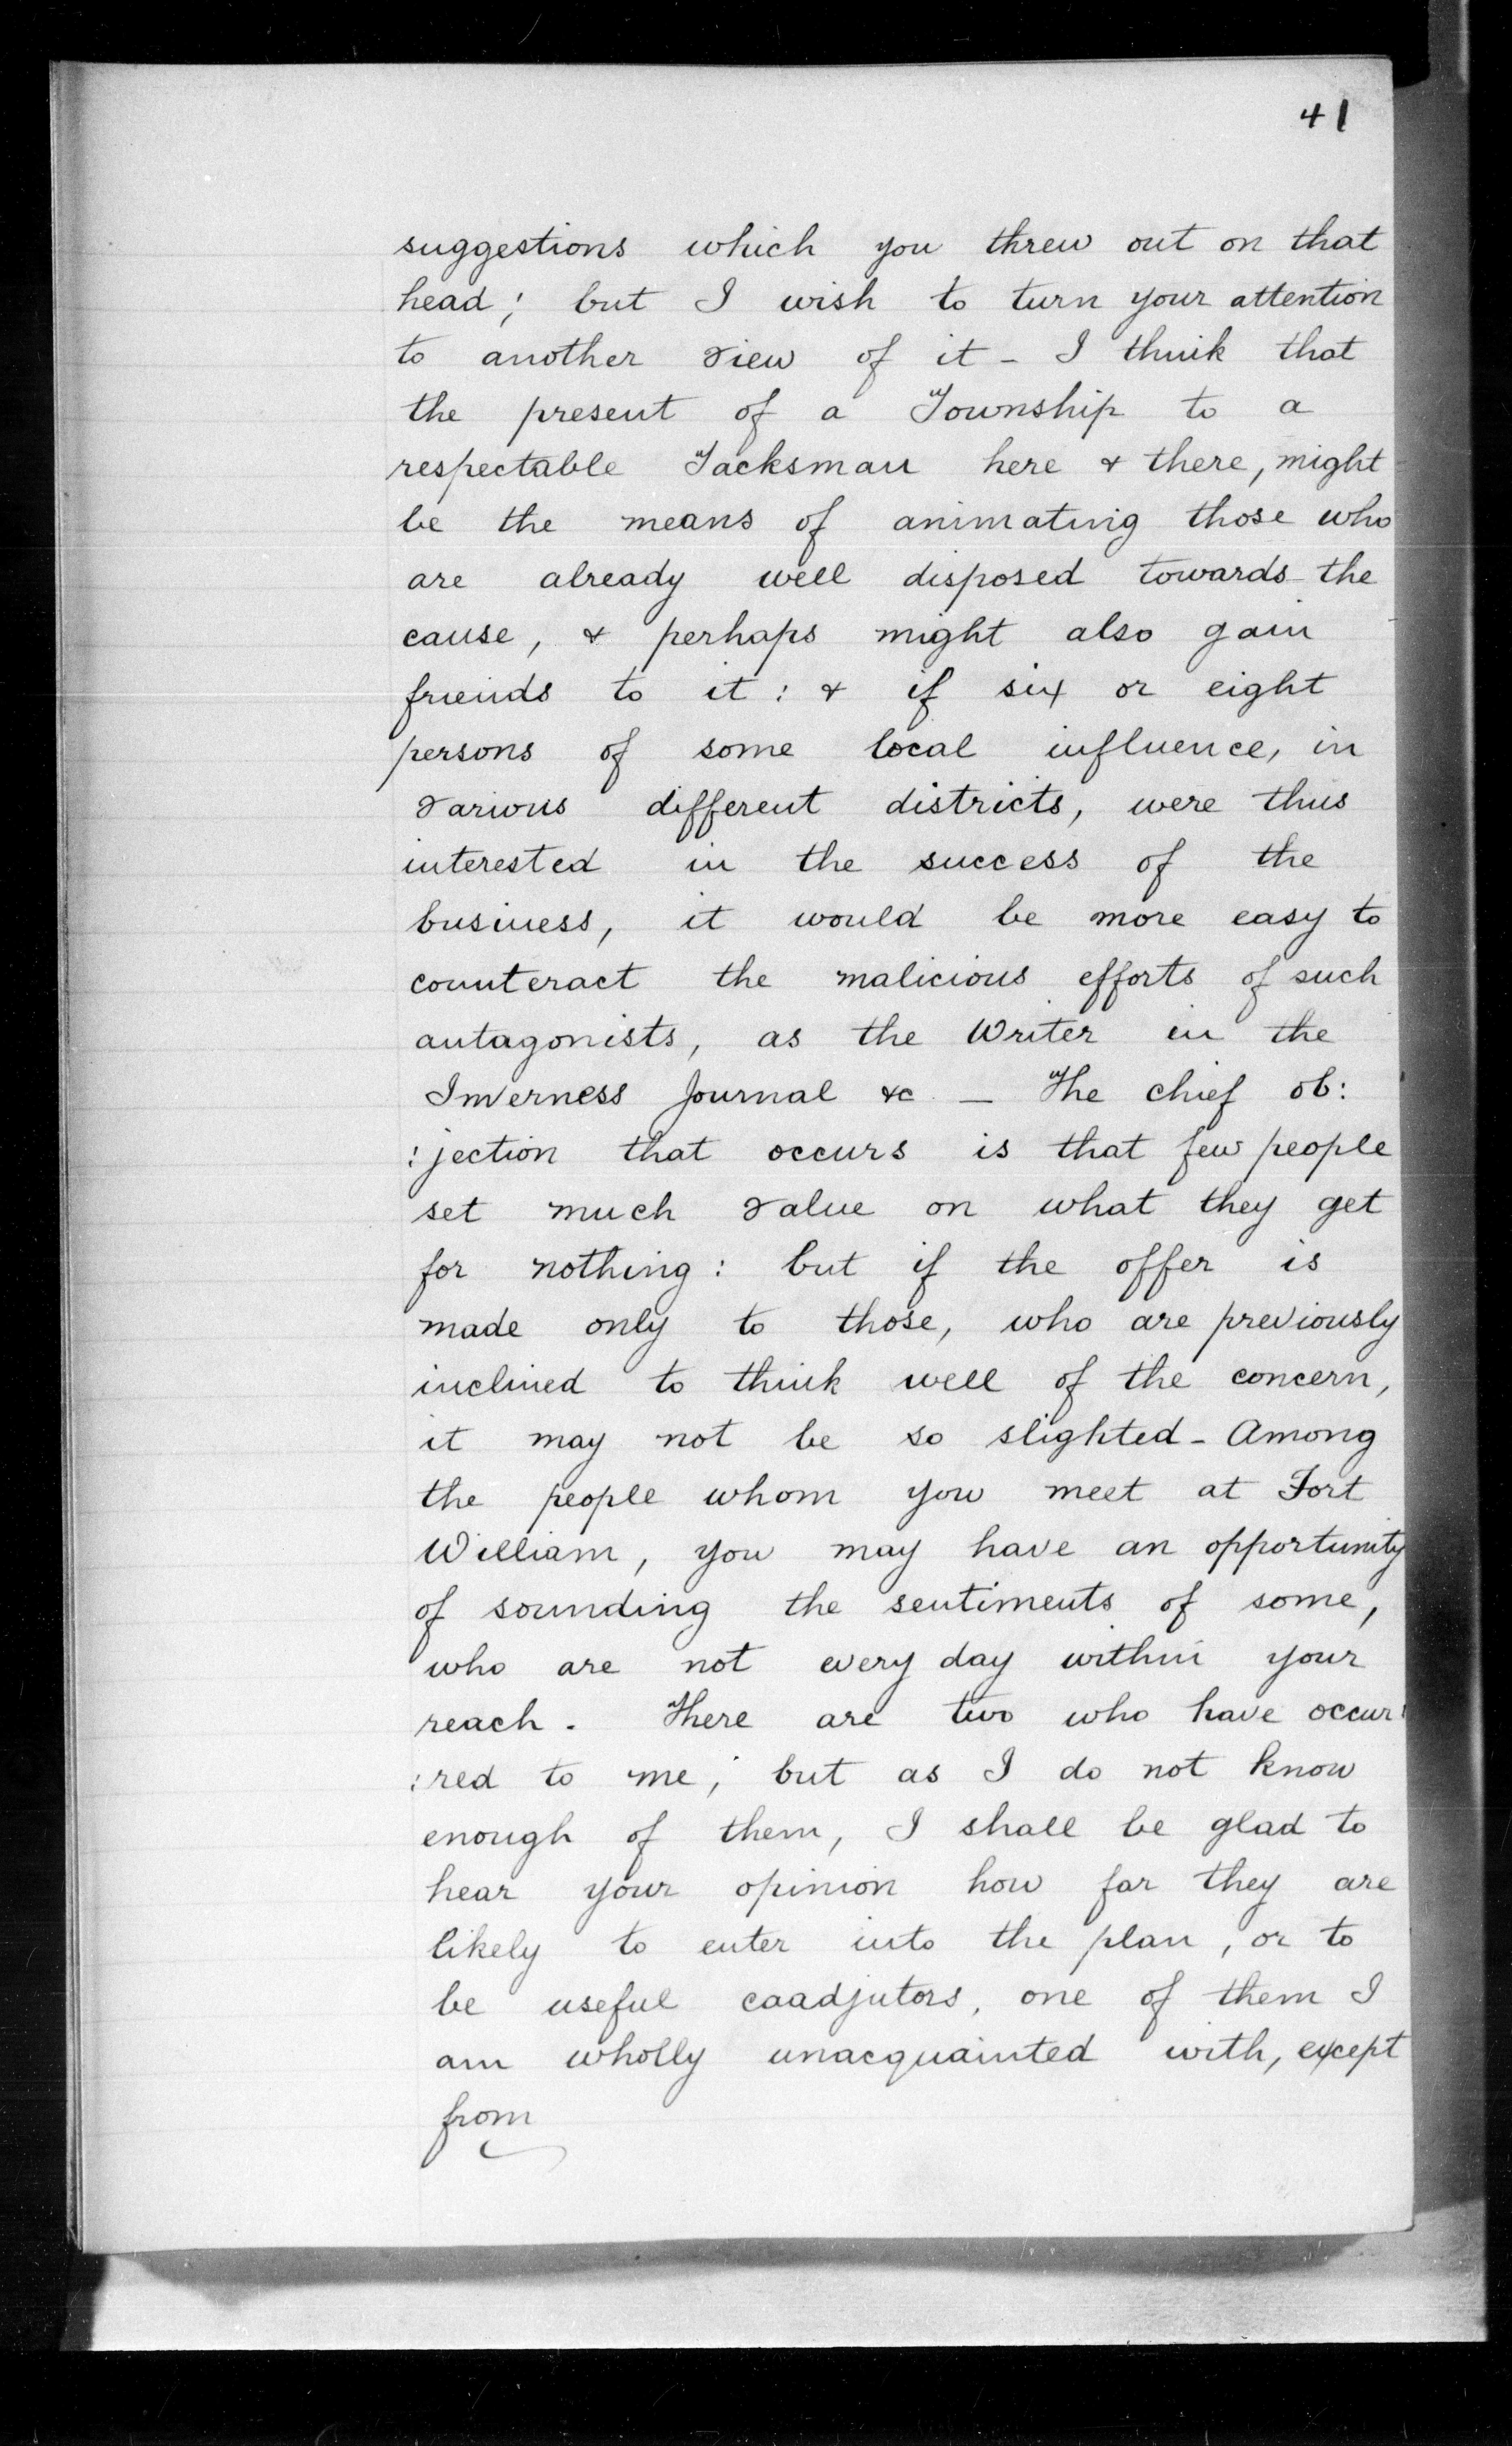 41
suggestions which you threw out on that
head; but I wish to turn your attention
to another view of it - I think that
the present of a Township to a
respectable Tacksman here & there, might
be the means of animating those who
are already well disposed towards the
cause, & perhaps might also gain
friends to it: & if six or eight
persons of some local influence, in
various different districts, were thus
interested in the success of the
business, it would be more easy to
counteract the malicious efforts of such
antagonists, as the Writer in the
Inverness Journal &c. — The chief ob:
:jection that occurs is that few people
set much value on what they get
for nothing: but if the offer is
made only to those, who are previously
inclined to think well of the concern,
it may not be so slighted - Among
the people whom you meet at Fort
William, you may have an opportunity
of sounding the sentiments of some,
who are not every day within your
reach. There are two who have occur:
:red to me; but as I do not know
enough of them, I shall be glad to
hear your opinion how far they are
likely to enter into the plan, or to
be useful caadjutors, one of them I
am wholly unacquainted with, except
from